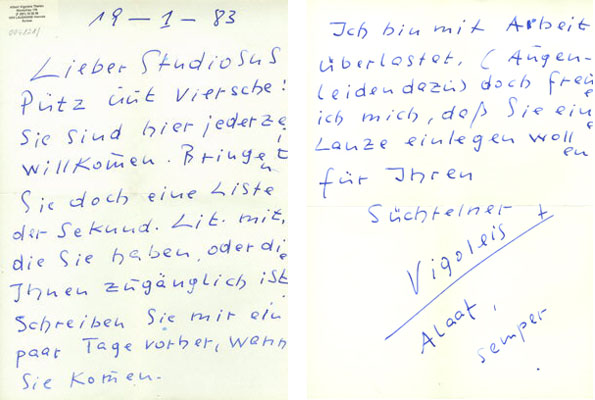 Albert Vigoleis Thelen
19-1-83
Lieber StudiosuS
Pütz üüt Viersche!
Sie sind hier jederzeit
willkom̄en. Bringen
Sie doch eine Liste
der Sekund. Lit. mit,
die Sie haben, oder die
Ihnen zugänglich ist
Schreiben Sie mir ein
paar Tage vorher, wann
Sie kom̄en.
Ich bin mit Arbeit
überlastet. (Augen-
leiden dazu) doch freue
ich mich, daß Sie eine
Lanze einlegen wollen
für Ihren
Süchtelner
Vigoleis +
Alaaf,
semper